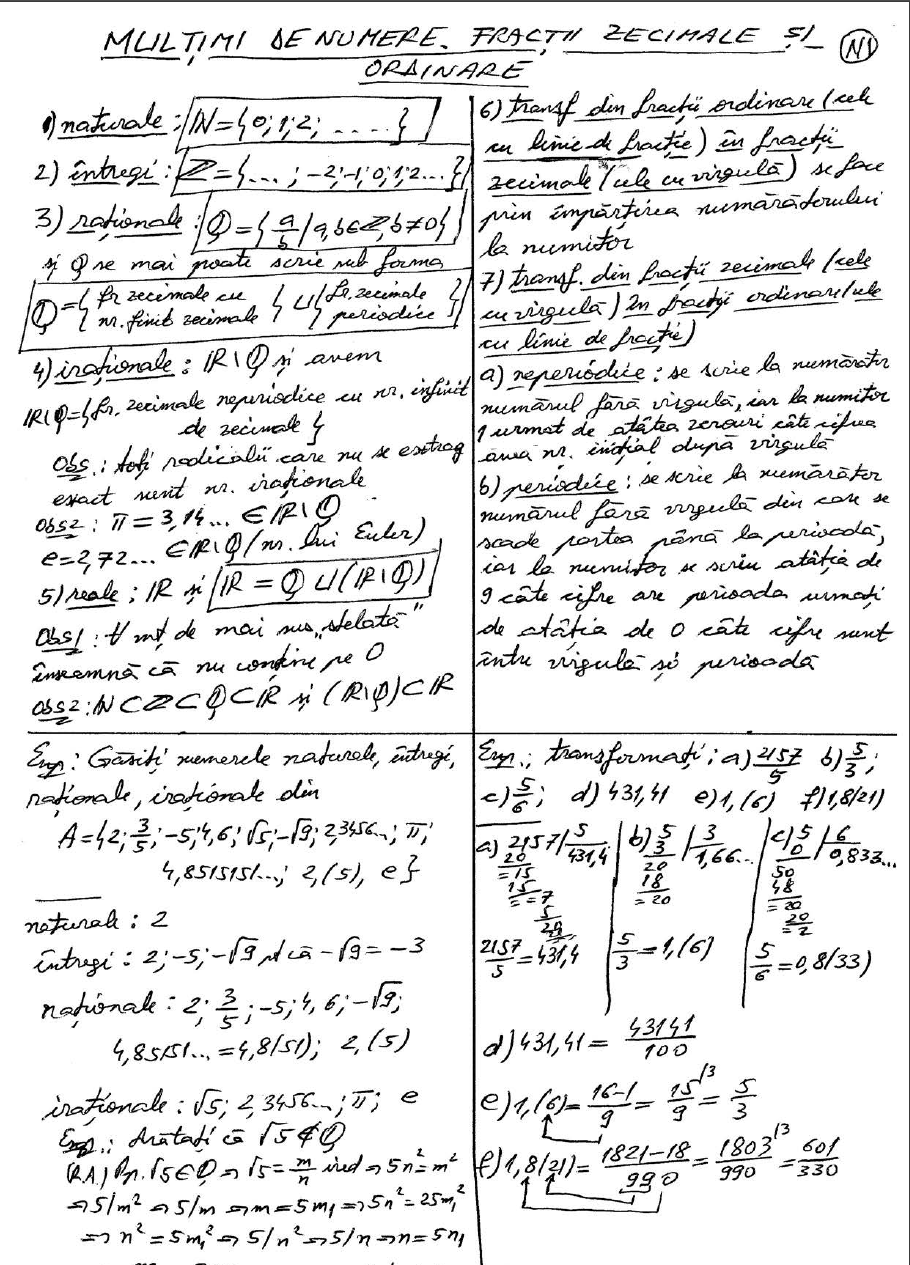 MULȚIMI DE NUMERE. FRACȚII ZECIMALE ȘI
ORDINARE
N1
1) naturale: ℕ={0;1;2; .....}
2) întregi: ℤ={...; -2;-1;0;1;2...}
3) raționale: ℚ={a/b / a,b∈ℤ, b≠0}
și ℚ se mai poate scrie sub forma
ℚ={fr zecimale cu nr. finit zecimale} ∪ {fr. zecimale periodice}
4) iraționale: ℝ\ℚ și avem
ℝ\ℚ={fr. zecimale neperiodice cu nr. infinit
de zecimale}
Obs1: toți radicalii care nu se extrag
exact sunt nr. iraționale
Obs2: π=3,14... ∈ℝ\ℚ
e=2,72... ∈ℝ\ℚ (nr. lui Euler)
5) reale: ℝ și ℝ=ℚ∪(ℝ\ℚ)
Obs1: ∀ mț de mai sus „stelată"
înseamnă că nu conține pe 0
Obs2: ℕ⊂ℤ⊂ℚ⊂ℝ și (ℝ\ℚ)⊂ℝ
6) transf din fracții ordinare (cele
cu linie de fracție) în fracții
zecimale (cele cu virgulă) se face
prin împărțirea numărătorului
la numitor
7) transf. din fracții zecimale (cele
cu virgulă) în fracții ordinare (cele
cu linie de fracție)
a) neperiodice: se scrie la numărător
numărul fără virgulă, iar la numitor
1 urmat de atâtea zerouri câte cifre
avea nr. inițial după virgulă
b) periodice: se scrie la numărător
numărul fără virgulă din care se
scade partea până la perioadă,
iar la numitor se scriu atâția de
9 câte cifre are perioada urmați
de atâția de 0 câte cifre sunt
între virgulă și perioadă
Exp: Găsiți numerele naturale, întregi,
raționale, iraționale din
A={2; 3/5; -5; 4,6; √5; -√9; 2,3456...; π;
4,8515151...; 2,(5), e}
naturale: 2
întregi: 2; -5; -√9 pt că -√9=-3
raționale: 2; 3/5; -5; 4,6; -√9;
4,85151...=4,8(51); 2,(5)
iraționale: √5; 2,3456...; π; e
Exp.: Arătați că √5∉ℚ
(R.A.) Pp. √5∈ℚ ⇒ √5=m/n ired ⇒ 5n²=m²
⇒5/m² ⇒5/m ⇒ m=5m₁ ⇒5n²=25m₁²
⇒ n²=5m₁² ⇒ 5/n² ⇒5/n ⇒n=5n₁
Exp.: transformați: a) 2157/5 b) 5/3;
c) 5/6; d) 431,41 e) 1,(6) f) 1,8(21)
a) 2157 | 5
20 431,4
=15
15
==7
5
20
20
2157/5=431,4
b) 5 | 3
3 1,66...
20
18
=20
5/3=1,(6)
c) 5 | 6
0 0,833...
50
48
=20
20
=2
5/6=0,8(33)
d) 431,41= 43141/100
e) 1,(6)= 16-1/9 = 15/9 /3 = 5/3
f) 1,8(21)= 1821-18/990 = 1803/990 /3 = 601/330